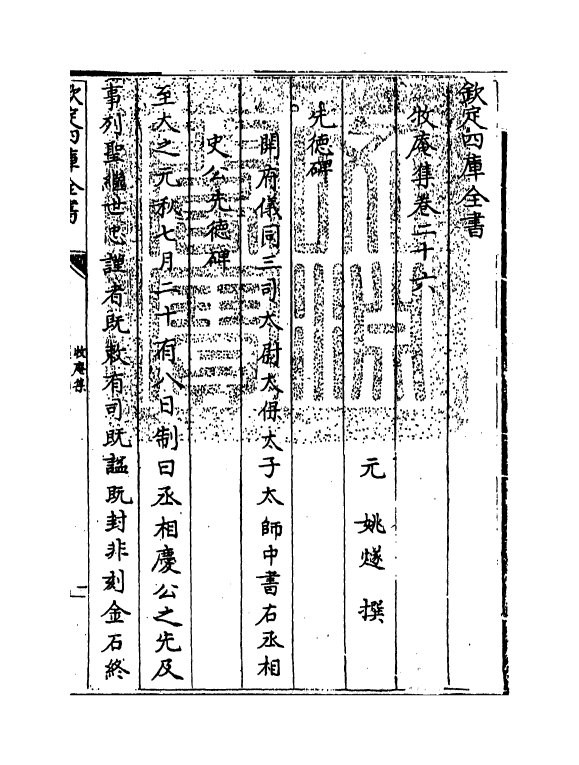 欽定四庫全書
牧庵集卷二十六
元 姚燧 撰
先德碑
開府儀同三司太尉太保太子太師中書右丞相
史公先德碑
至大之元秋七月二十有八日制曰丞相慶公之先及
事列聖繼世忠謹者既敕有司既諡既封非刻金石終
欽定四庫全書
牧庵集
一